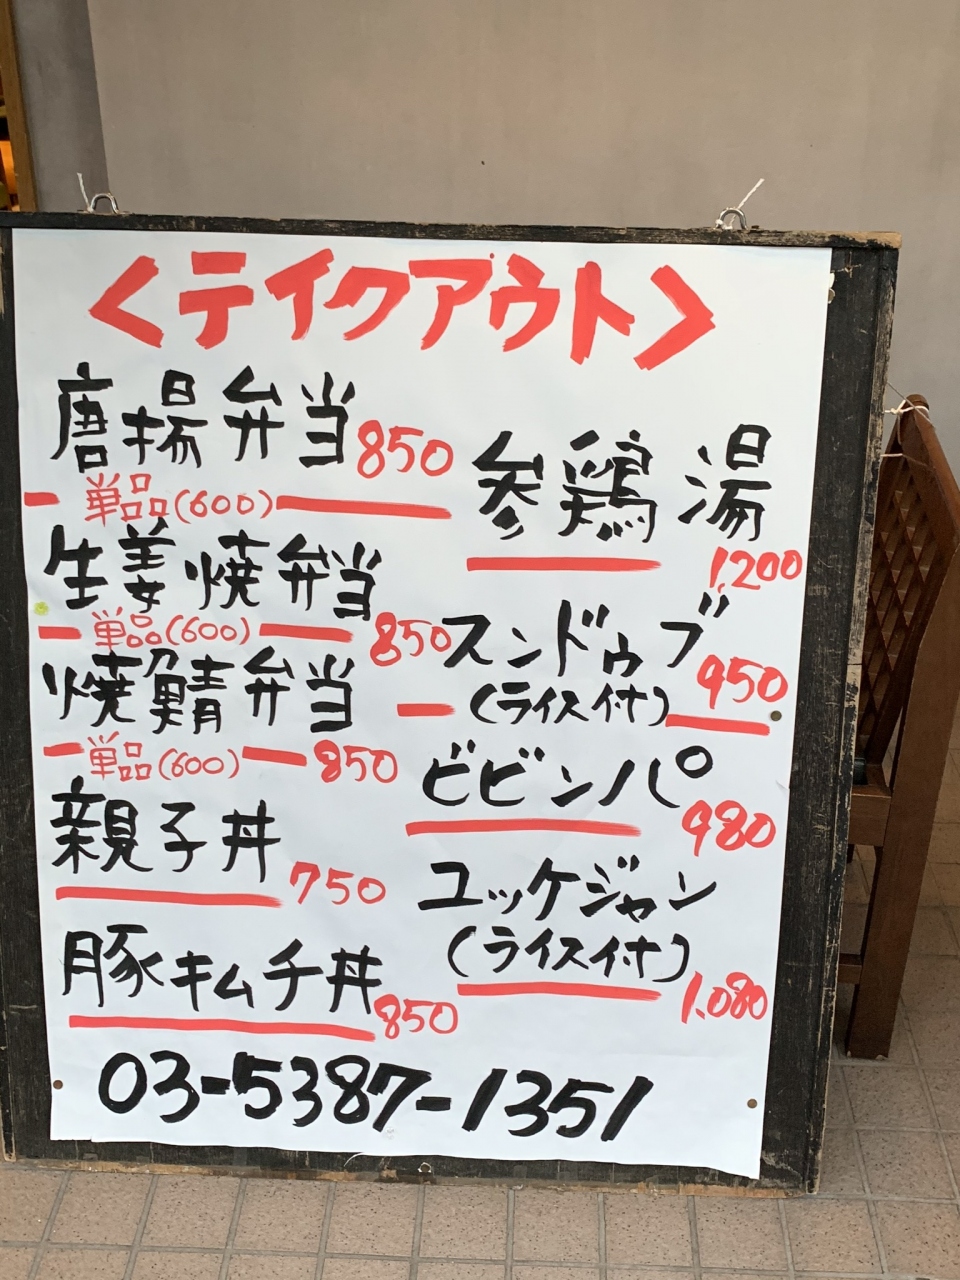 <テイクアウト>
唐揚弁当 850
単品(600)
生姜焼弁当
単品(600) 850
焼鯖弁当
単品(600) 850
親子丼 750
豚キムチ丼 850
参鶏湯
1,200
スンドゥブ
(ライス付) 950
ビビンパ
980
ユッケジャン
(ライス付) 1,080
03-5387-1351